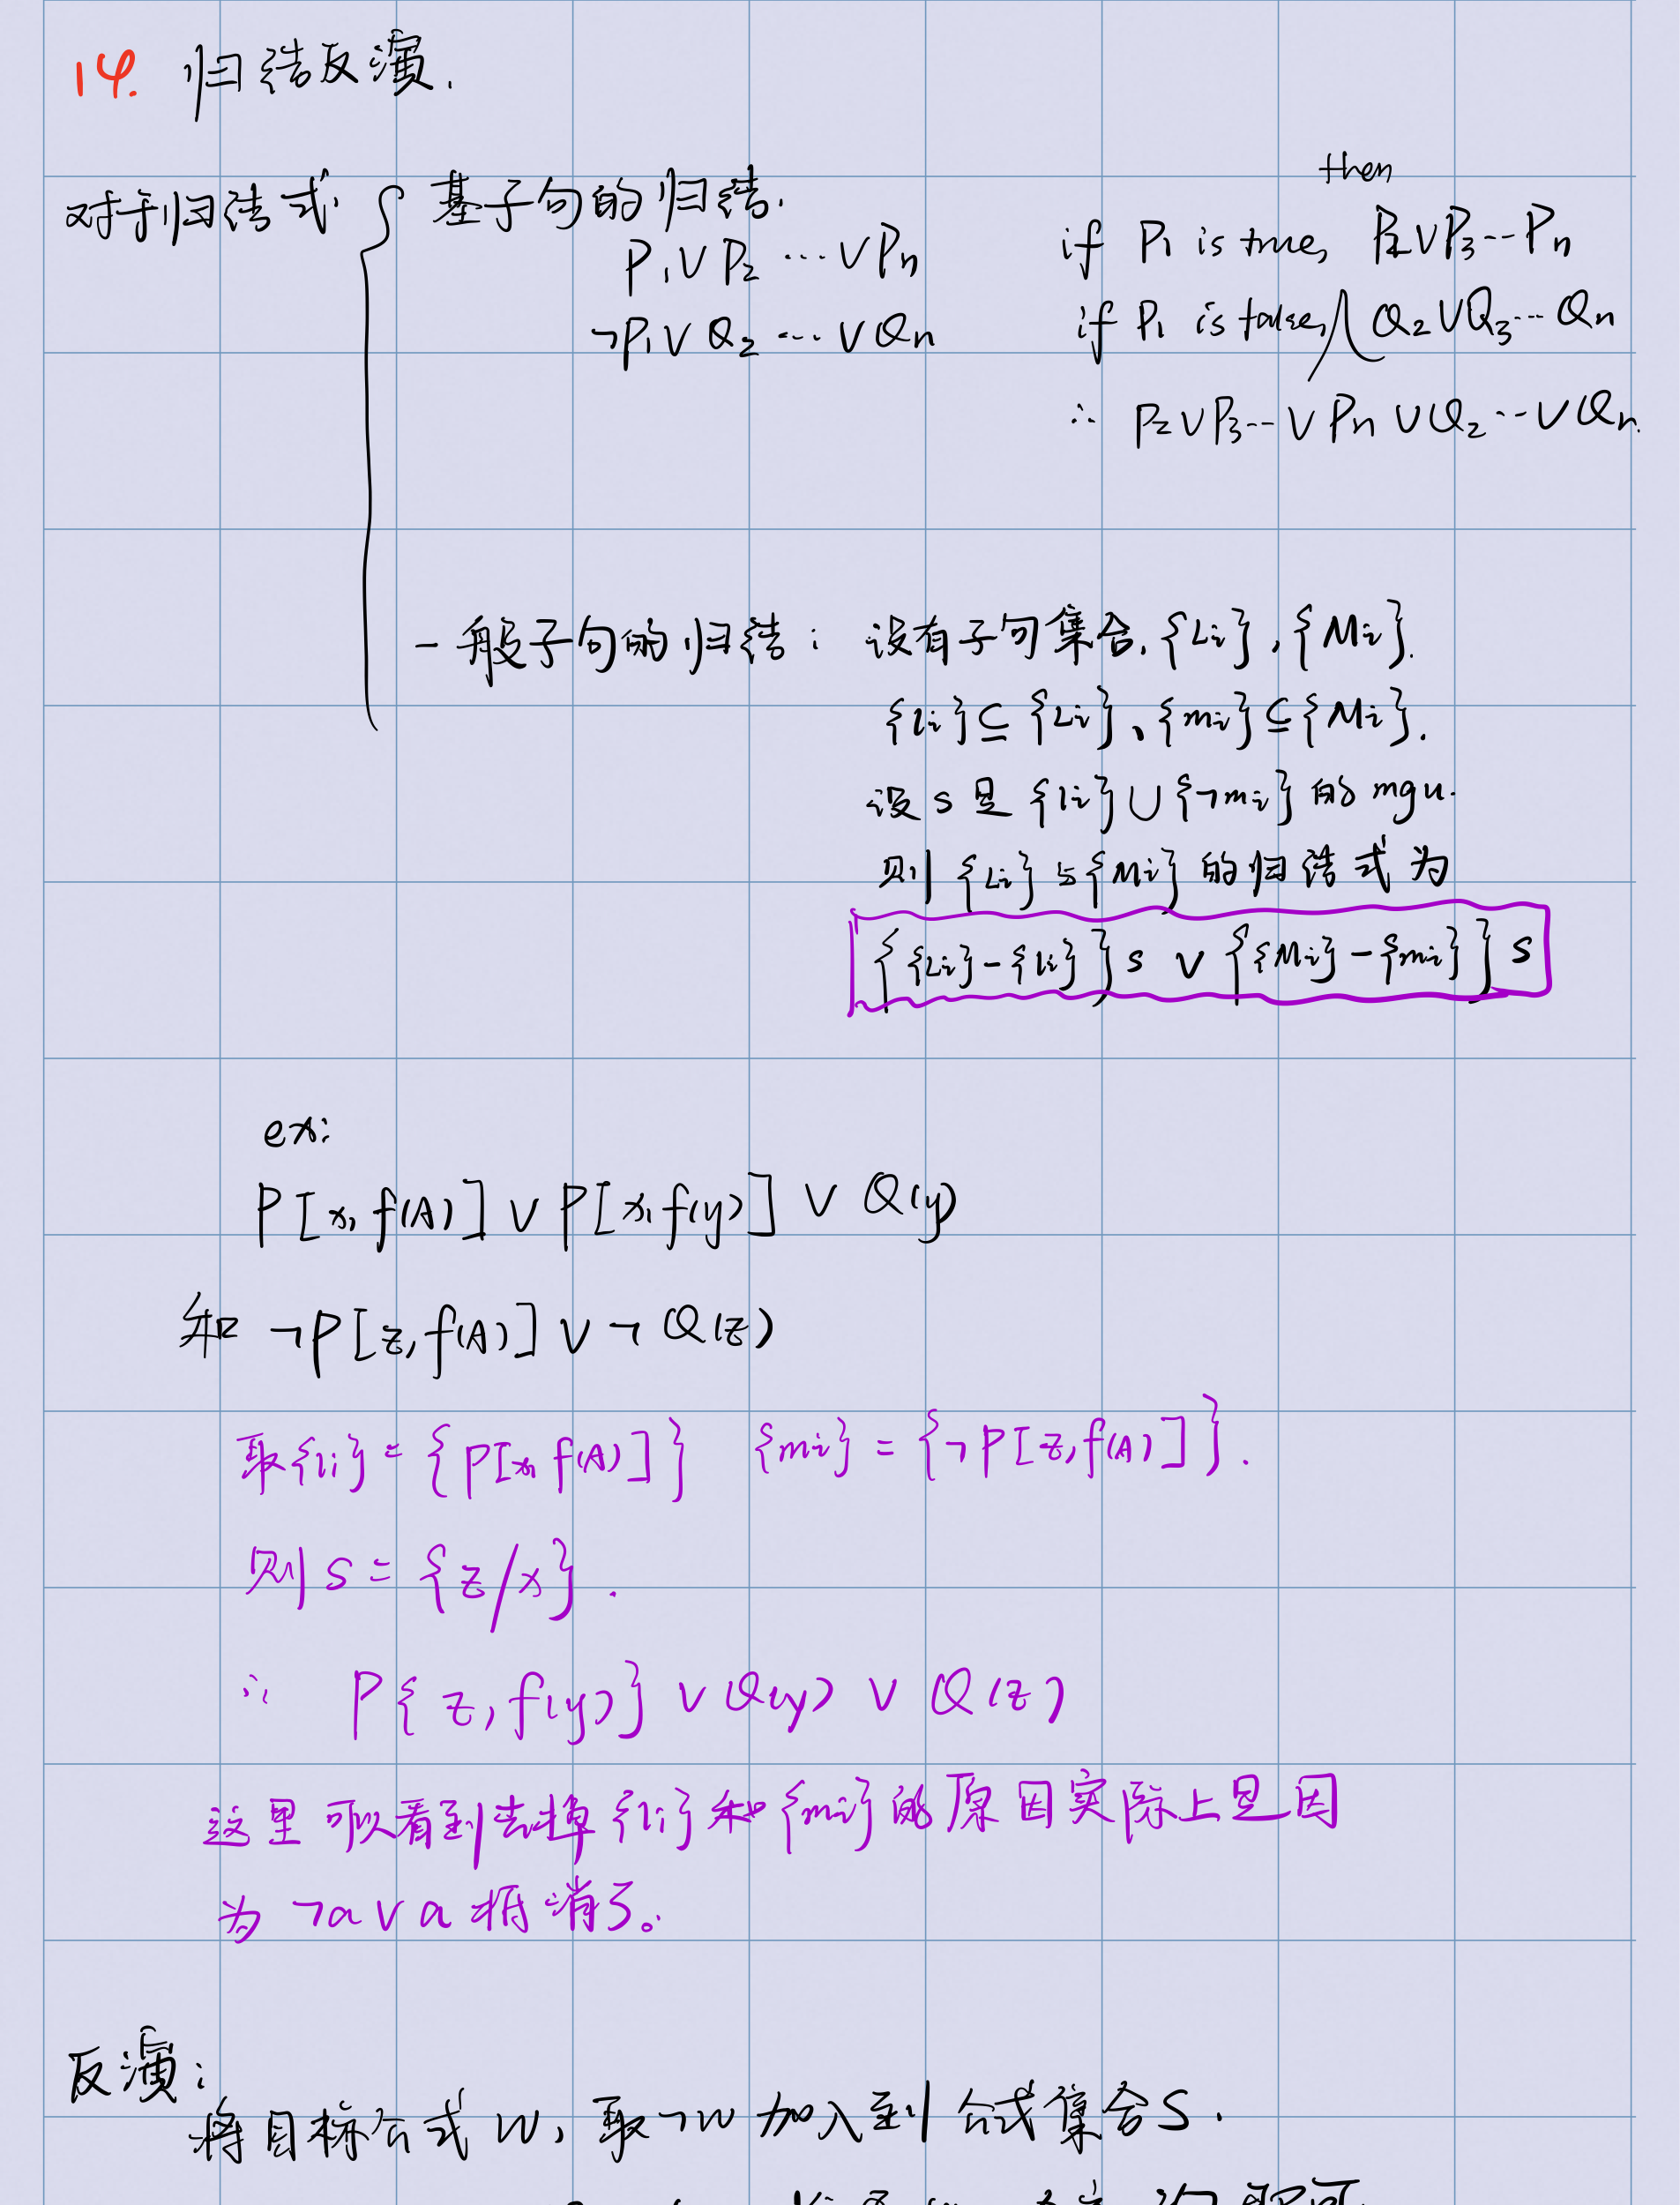 14. 归结反演.
对于归结式 { 基子句的归结.
P₁∨P₂ ⋯ ∨Pₙ
¬P₁∨Q₂ ⋯ ∨Qₙ
then
if P₁ is true, P₂∨P₃⋯Pₙ
if P₁ is false, Q₂∨Q₃⋯Qₙ
∴ P₂∨P₃⋯∨Pₙ∨Q₂⋯∨Qₙ
一般子句的归结: 设有子句集合, {Li}, {Mi}.
{li}⊆{Li}、{mi}⊆{Mi}.
设 s 是 {li}∪{¬mi} 的 mgu.
则 {Li} 与 {Mi} 的归结式为
{{Li}-{li}}s ∨ {{Mi}-{mi}}s
ex:
P[x, f(A)] ∨ P[x, f(y)] ∨ Q(y)
和 ¬P[z, f(A)] ∨ ¬Q(z)
取{li} = {P[x, f(A)]} {mi} = {¬P[z, f(A)]}.
则 s = {z/x}.
∴ P{z, f(y)} ∨ Q(y) ∨ Q(z)
这里可以看到去掉{li}和{mi}的原因实际上是因
为 ¬a∨a 抵消了。
反演:
将目标公式 W, 取 ¬W 加入到公式集合S.